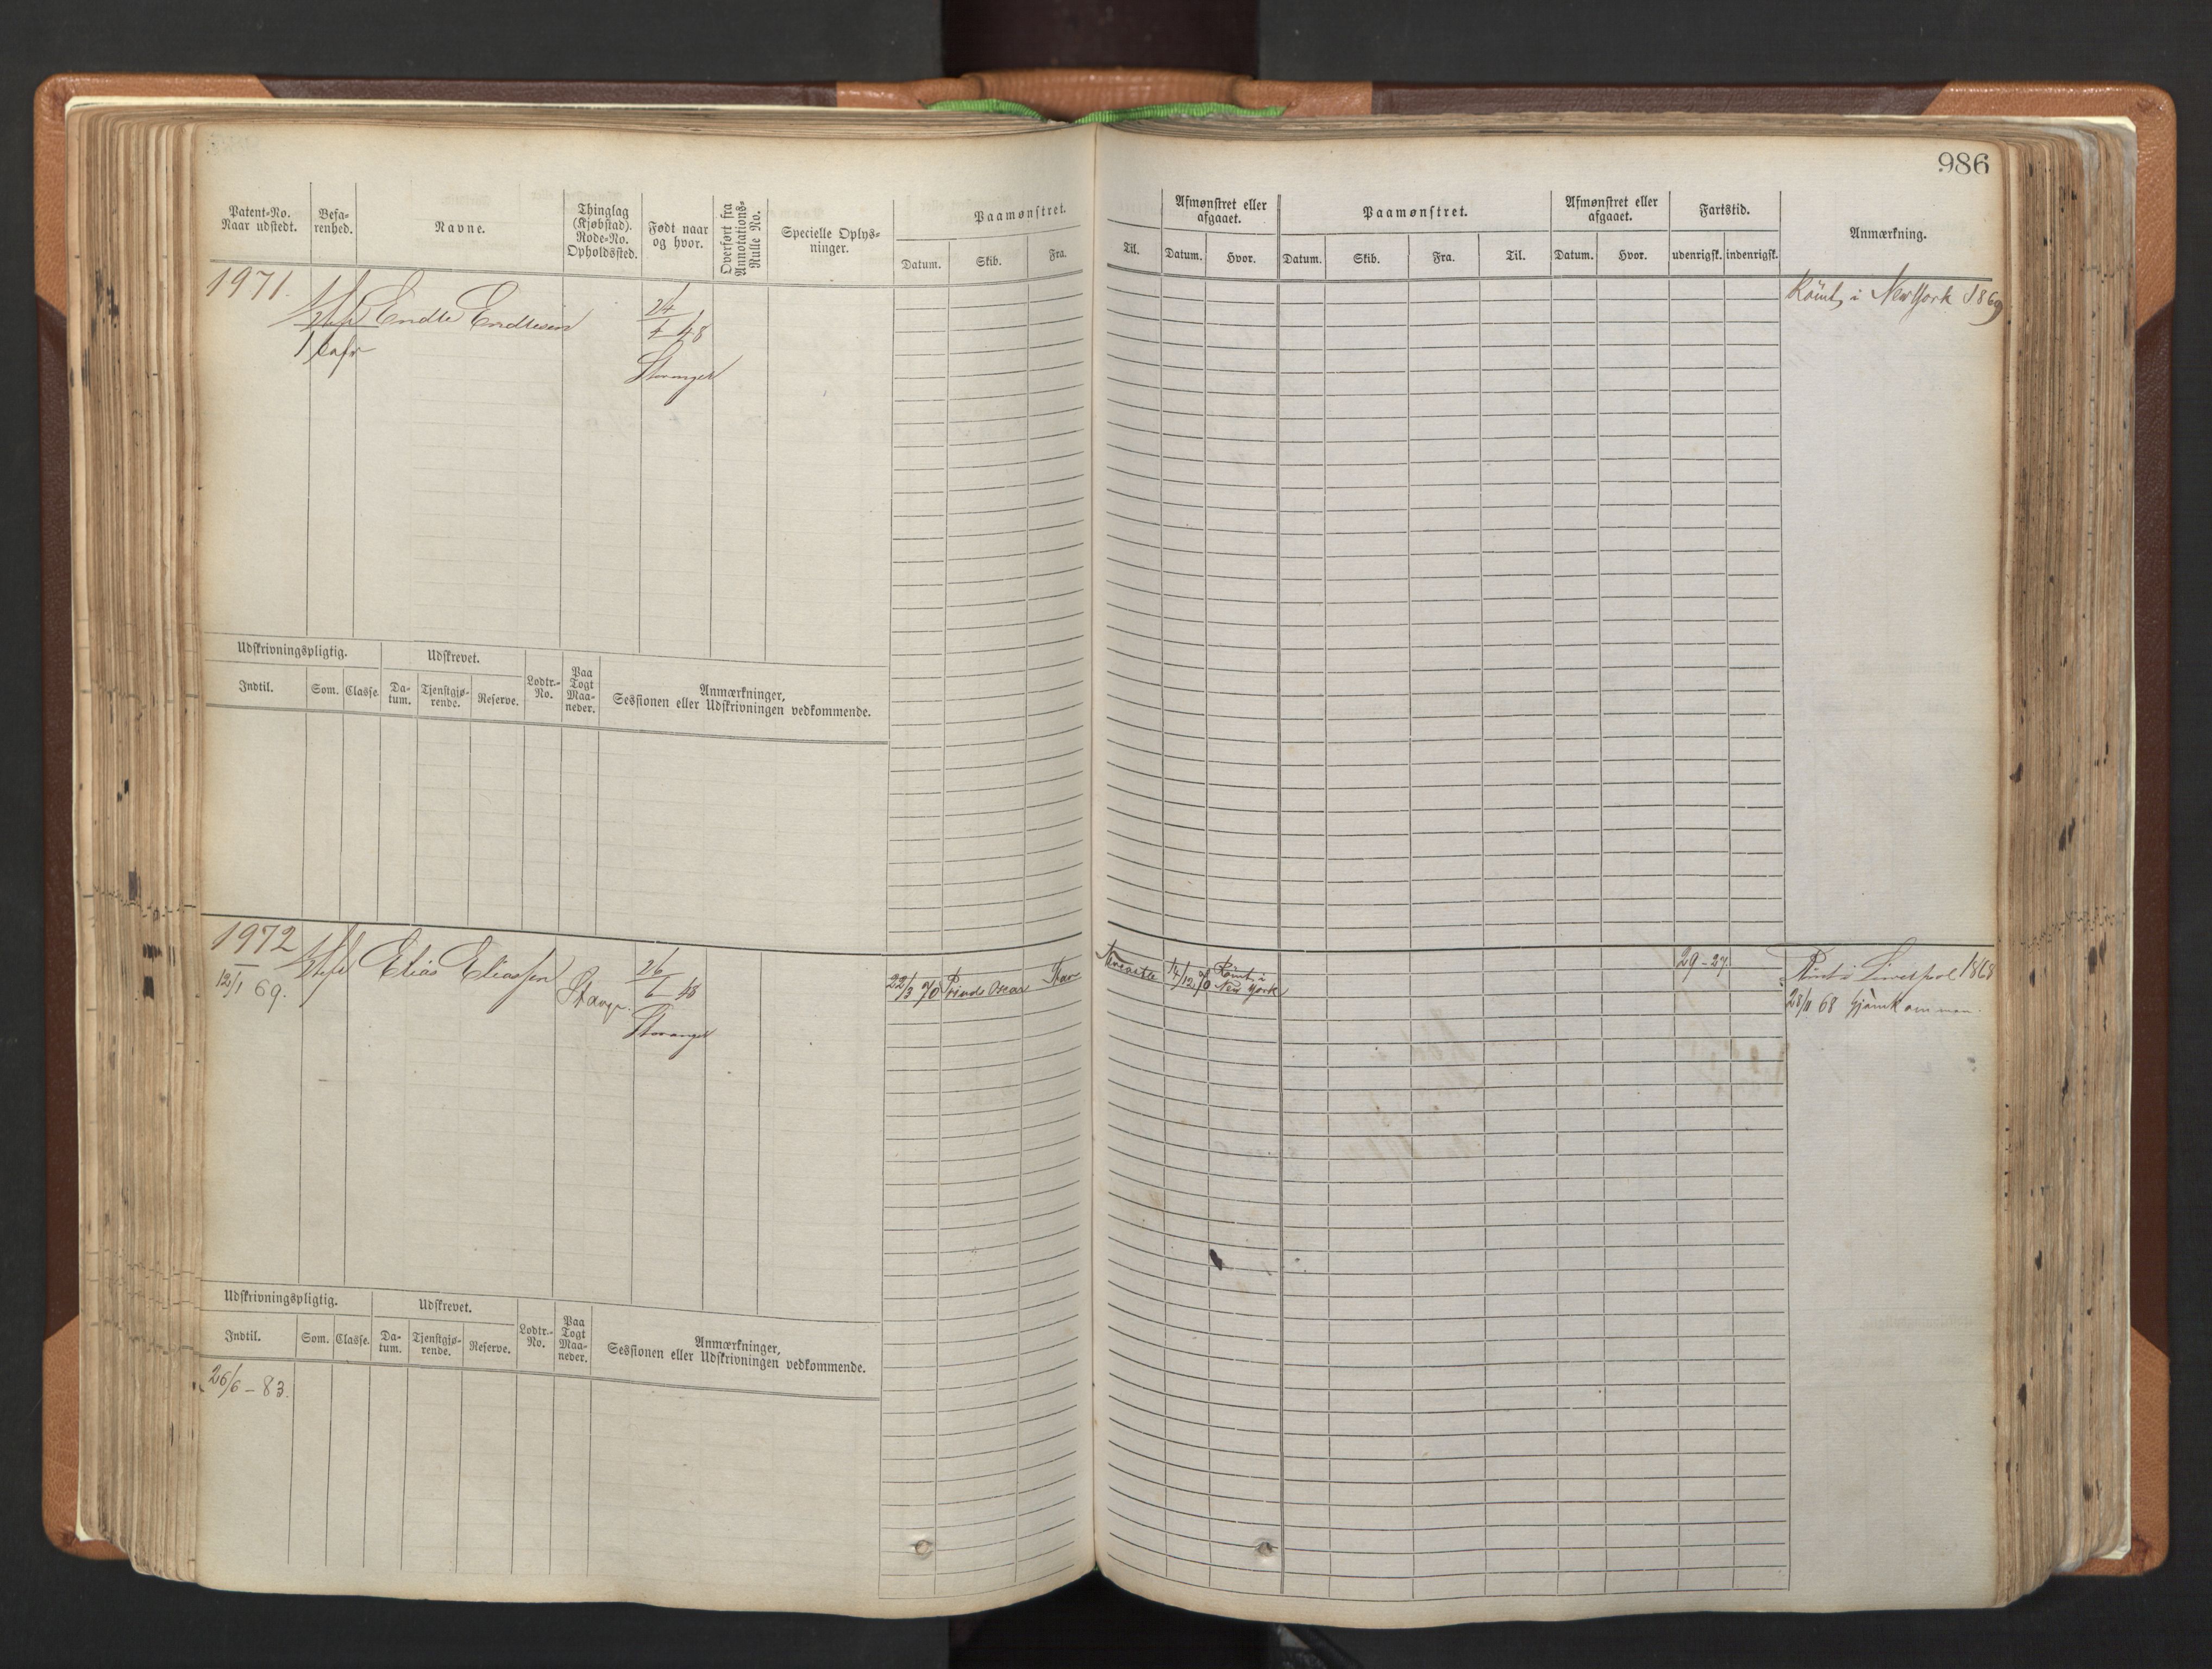 986
Patent-No. Naar udstedt. Befarenhed. Navne. Thinglag (Kjøbstad). Rode-No. Opholdssted. Født naar og hvor. Overført fra Annotations-Rulle No. Specielle Oplysninger. Paamønstret. Datum. Skib. Fra.
Til. Afmønstret eller afgaaet. Datum. Hvor. Paamønstret. Datum. Skib. Fra. Til. Afmønstret eller afgaaet. Datum. Hvor. Fartstid. udenrigsk. indenrigsk. Anmærkning.
1971. Endle Endlesen 24/4 48 Römt i New York 1869
Stavanger
Udskrivningspligtig. Udskrevet. Lodtr.-No. Paa Togt Maaneder. Anmærkninger, Sessionen eller Udskrivningen vedkommende.
Indtil. Som. Classe. Datum. Tjenstgjørende. Reserve.
1972 Elias Eliassen Stavgr. 26/6 48 22/3 70 Prinds Oscar Stav 14/12 70 Römt i New York 29-27. Römt i Liverpool 1868
12/1 69. Stavanger 28/11 68 hjemkommen.
Udskrivningspligtig. Udskrevet. Lodtr.-No. Paa Togt Maaneder. Anmærkninger, Sessionen eller Udskrivningen vedkommende.
Indtil. Som. Classe. Datum. Tjenstgjørende. Reserve.
26/6 - 83.